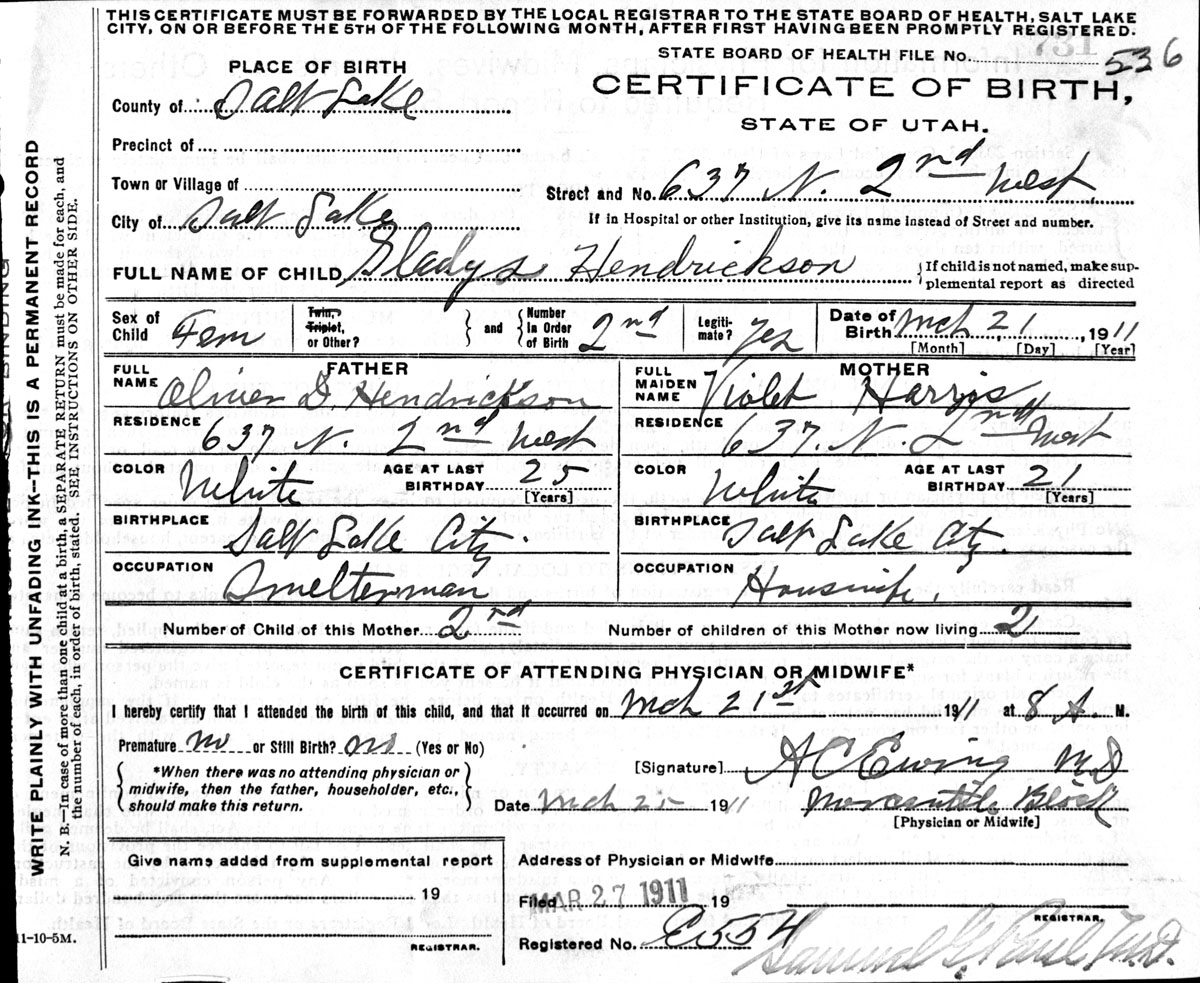 THIS CERTIFICATE MUST BE FORWARDED BY THE LOCAL REGISTRAR TO THE STATE BOARD OF HEALTH, SALT LAKE
CITY, ON OR BEFORE THE 5TH OF THE FOLLOWING MONTH, AFTER FIRST HAVING BEEN PROMPTLY REGISTERED.
STATE BOARD OF HEALTH FILE No. 536
PLACE OF BIRTH
CERTIFICATE OF BIRTH,
County of Salt Lake
STATE OF UTAH.
Precinct of
Town or Village of
Street and No. 637 N. 2nd West
City of Salt Lake
If in Hospital or other Institution, give its name instead of Street and number.
FULL NAME OF CHILD Gladys Hendrickson
If child is not named, make sup-
plemental report as directed
Sex of Child Fem
Twin, Triplet, or Other?
and
Number in Order of Birth 2nd
Legiti-mate? Yes
Date of Birth Mch 21, 1911
[Month] [Day] [Year]
FATHER
FULL NAME Oliver D. Hendrickson
RESIDENCE 637 N. 2nd West
COLOR White AGE AT LAST BIRTHDAY 25
[Years]
BIRTHPLACE Salt Lake City
OCCUPATION Smelterman
MOTHER
FULL MAIDEN NAME Violet Harris
RESIDENCE 637 N. 2nd West
COLOR White AGE AT LAST BIRTHDAY 21
[Years]
BIRTHPLACE Salt Lake City.
OCCUPATION Housewife.
Number of Child of this Mother 2nd
Number of children of this Mother now living 2
CERTIFICATE OF ATTENDING PHYSICIAN OR MIDWIFE*
I hereby certify that I attended the birth of this child, and that it occurred on Mch 21st 1911 at 8 A. M.
Premature no or Still Birth? no (Yes or No)
*When there was no attending physician or
midwife, then the father, householder, etc.,
should make this return.
[Signature] A C Ewing MD
Date Mch 25 1911 Mercantile Block
[Physician or Midwife]
Give name added from supplemental report
19
REGISTRAR.
Address of Physician or Midwife
Filed MAR 27 1911 19
REGISTRAR.
Registered No. C554
Samuel G. Paul, M.D.
11-10-5M.
WRITE PLAINLY WITH UNFADING INK—THIS IS A PERMANENT RECORD
N. B.—In case of more than one child at a birth, a SEPARATE RETURN must be made for each, and
the number of each, in order of birth, stated. SEE INSTRUCTIONS ON OTHER SIDE.